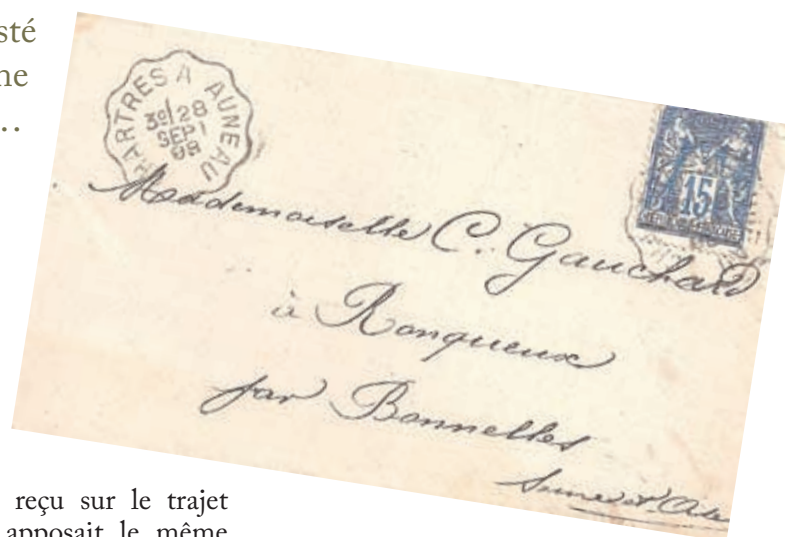 sté
ne
…
CHARTRES A AUNEAU
3º/28
SEPT
98
15
Mademoiselle C. Gauchard
à Ronqueux
par Bonnelles
Seine et Oise
reçu sur le trajet
apposait le même